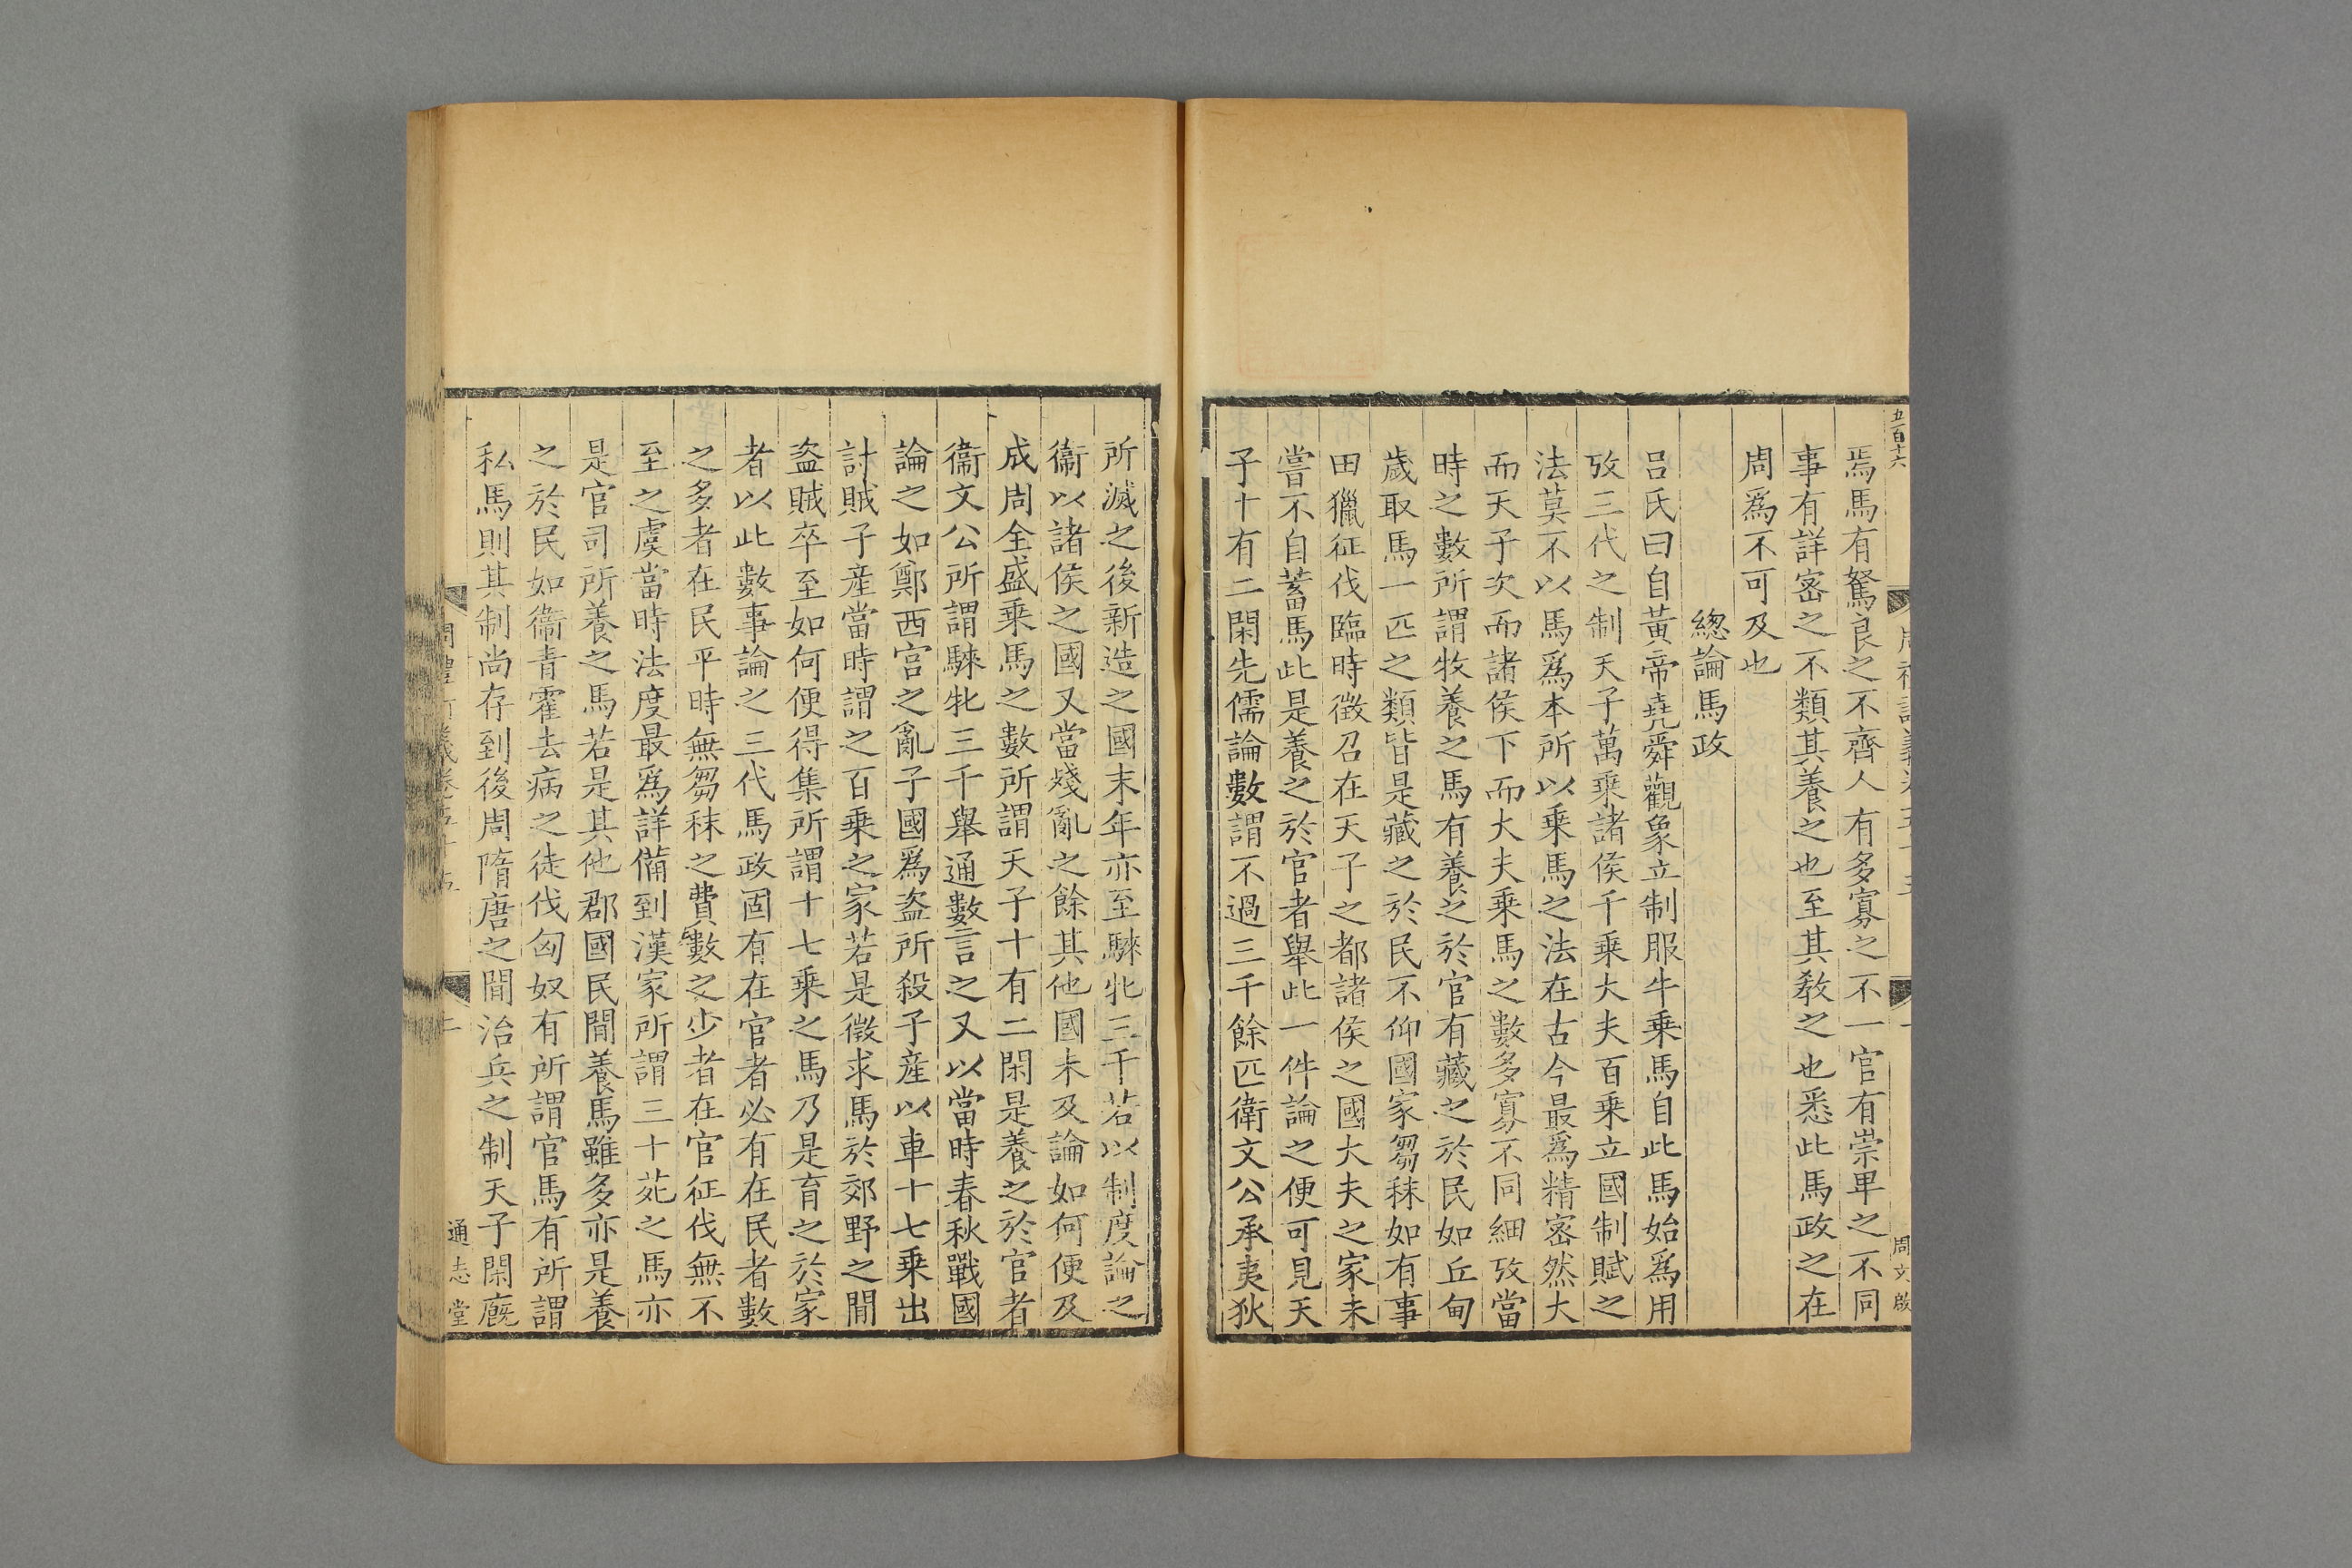 五百十六
周文啟
焉馬有駑良之不齊人有多寡之不一官有崇卑之不同
事有詳宻之不類其養之也至其教之也悉此馬政之在
周爲不可及也
總論馬政
吕氏曰自黃帝堯舜觀象立制服牛乗馬自此馬始爲用
攷三代之制天子萬乗諸侯千乗大夫百乗立國制賦之
法莫不以馬爲本所以乗馬之法在古今最爲精宻然大
而天子次而諸侯下而大夫乗馬之數多寡不同細攷當
時之數所謂牧養之馬有養之於官有藏之於民如丘甸
歲取馬一匹之類皆是藏之於民不仰國家芻秣如有事
田獵征伐臨時徵召在天子之都諸侯之國大夫之家未
嘗不自蓄馬此是養之於官者舉此一件論之便可見天
子十有二閑先儒論數謂不過三千餘匹衛文公承夷狄
所滅之後新造之國末年亦至騋牝三千若以制度論之
衞以諸侯之國又當殘亂之餘其他國未及論如何便及
成周全盛乗馬之數所謂天子十有二閑是養之於官者
衞文公所謂騋牝三千舉通數言之又以當時春秋戰國
論之如鄭西宫之亂子國爲盗所殺子産以車十七乗出
討賊子産當時謂之百乗之家若是徵求馬於郊野之間
盗賊卒至如何便得集所謂十七乗之馬乃是育之於家
者以此數事論之三代馬政固有在官者必有在民者數
之多者在民平時無芻秣之費數之少者在官征伐無不
至之虞當時法度最爲詳備到漢家所謂三十苑之馬亦
是官司所養之馬若是其他郡國民間養馬雖多亦是養
之於民如衞青霍去病之徒伐匈奴有所謂官馬有所謂
私馬則其制尚存到後周隋唐之間治兵之制天子閑廐
通志堂